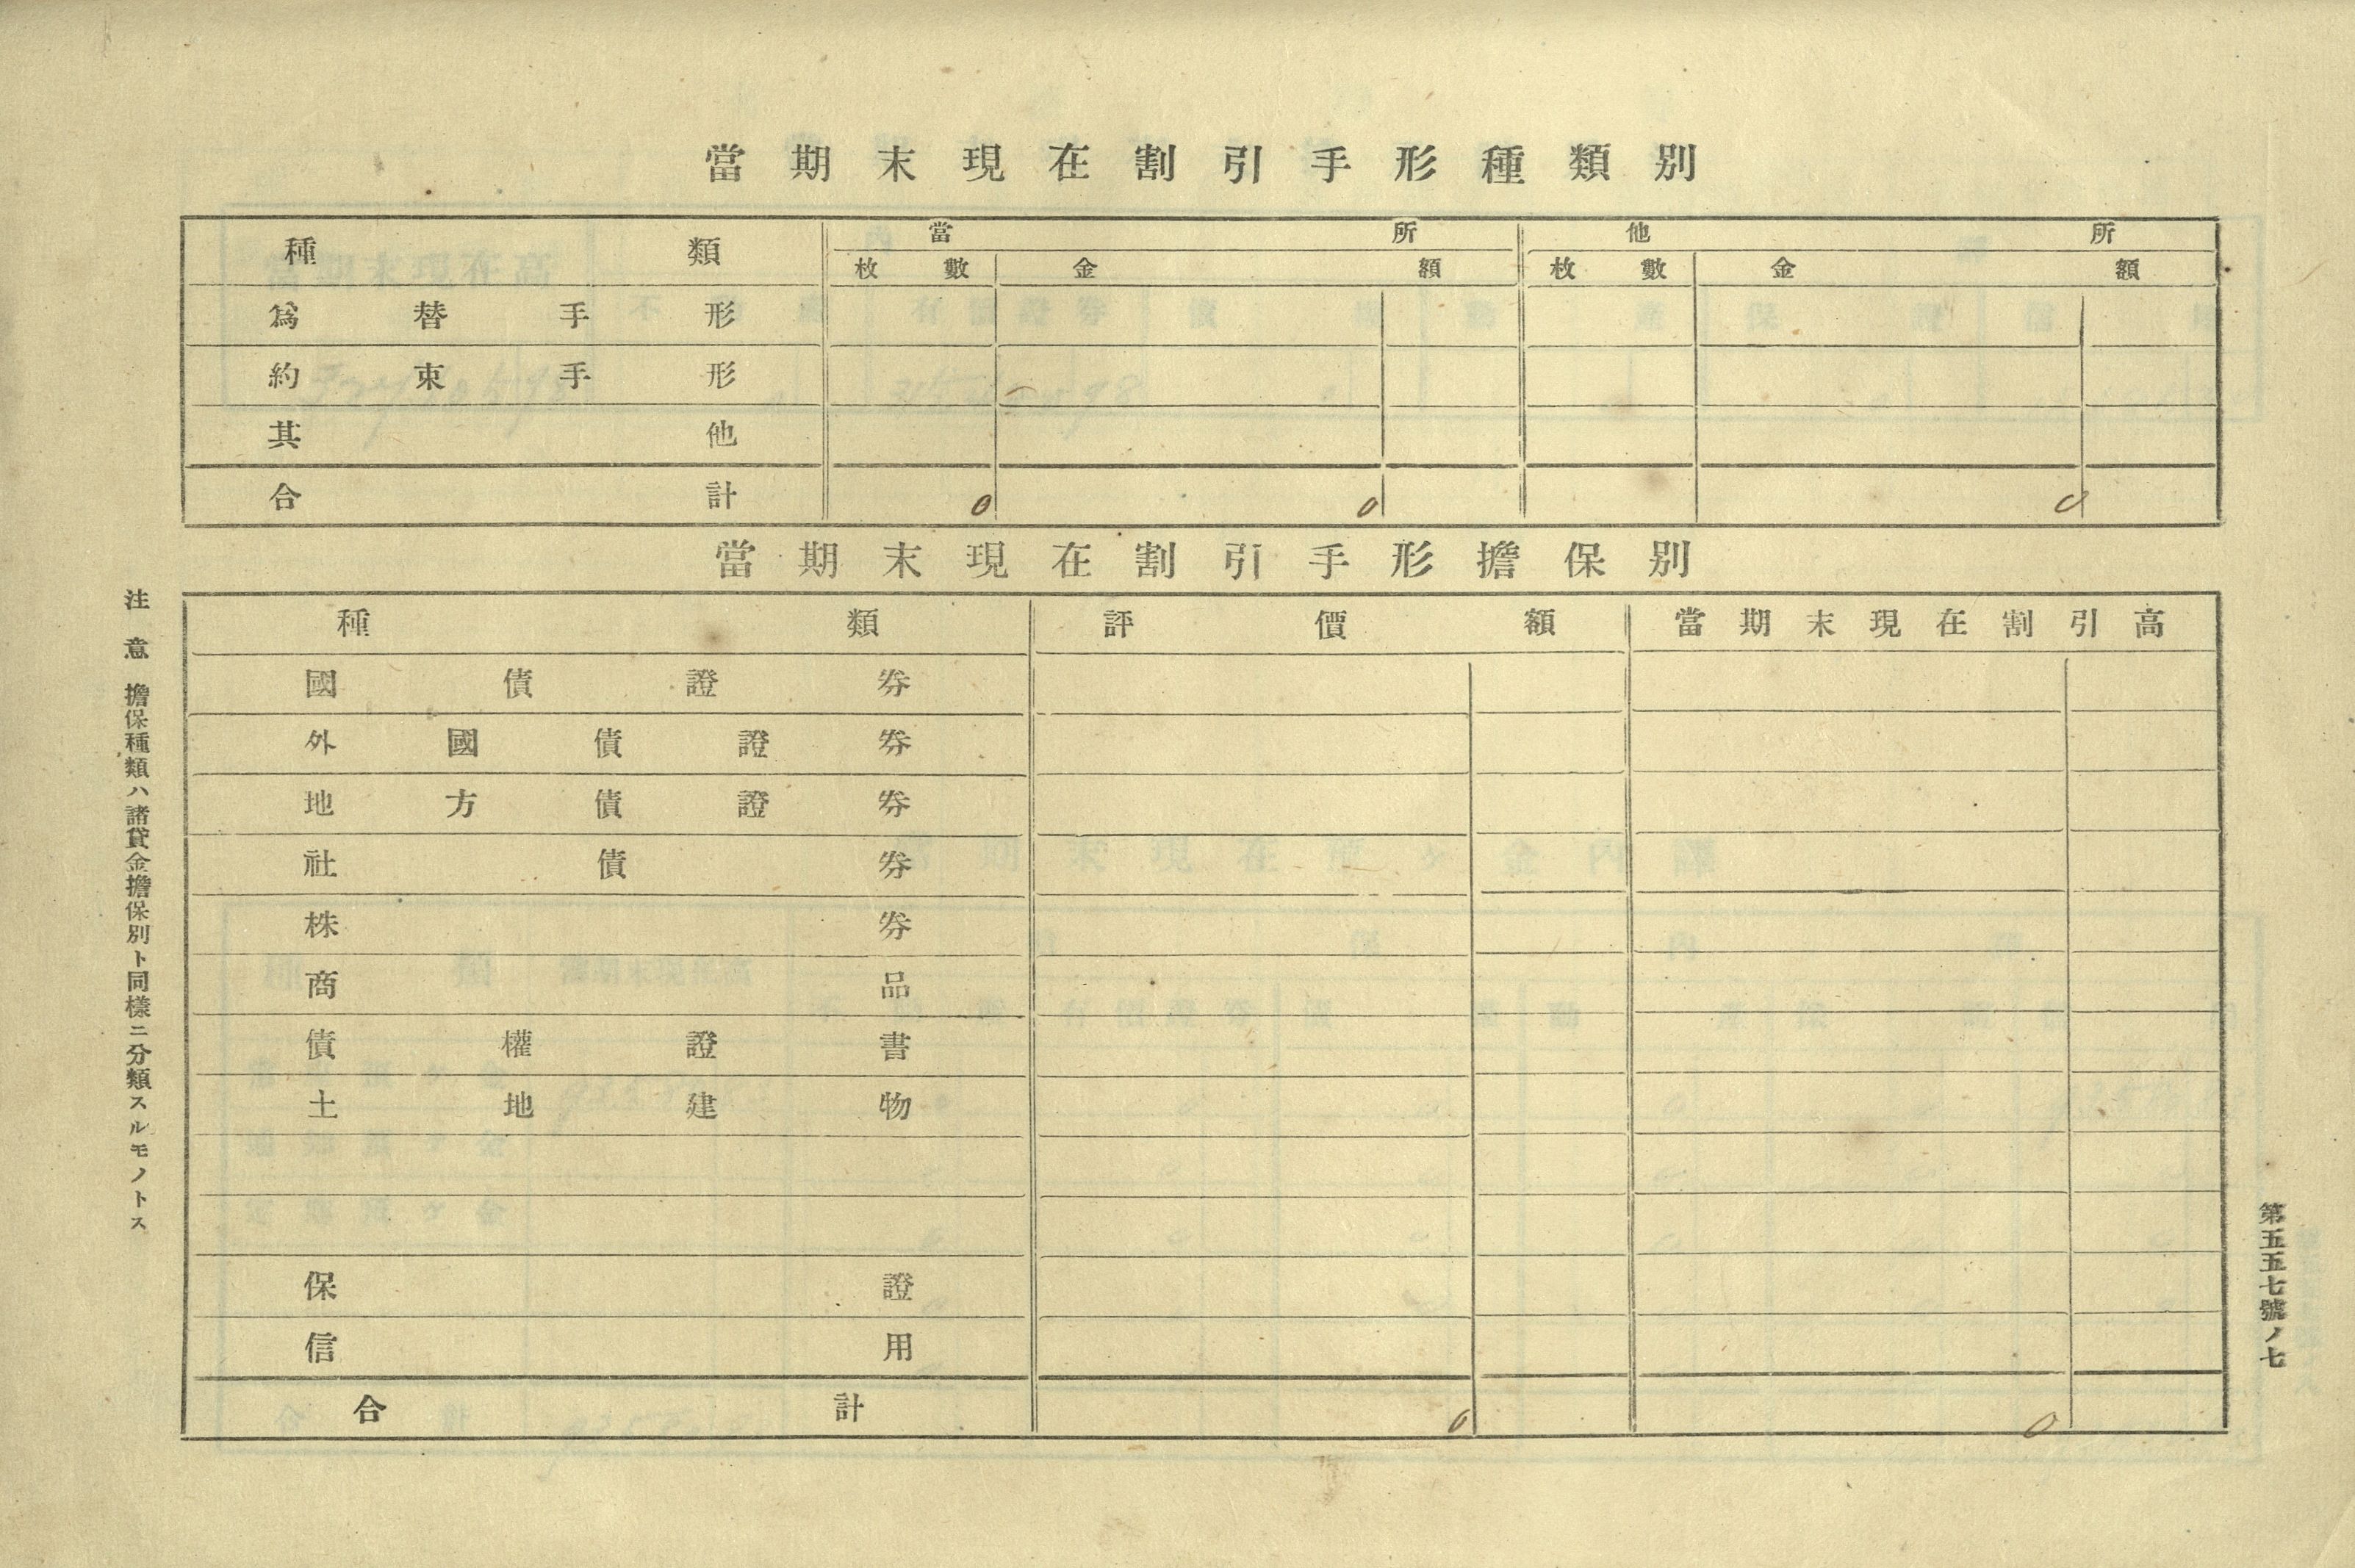 當期末現在割引手形種類別
種類 當所 他所
枚數 金額 枚數 金額
爲替手形
約束手形
其他
合計 0 0 0
當期末現在割引手形擔保別
種類 評價額 當期末現在割引高
國債證券
外國債證券
地方債證券
社債券
株券
商品
債權證書
土地建物
保證
信用
合計 0 0
注意 擔保種類ハ諸貸金擔保別ト同樣ニ分類スルモノトス
第五五七號ノ七